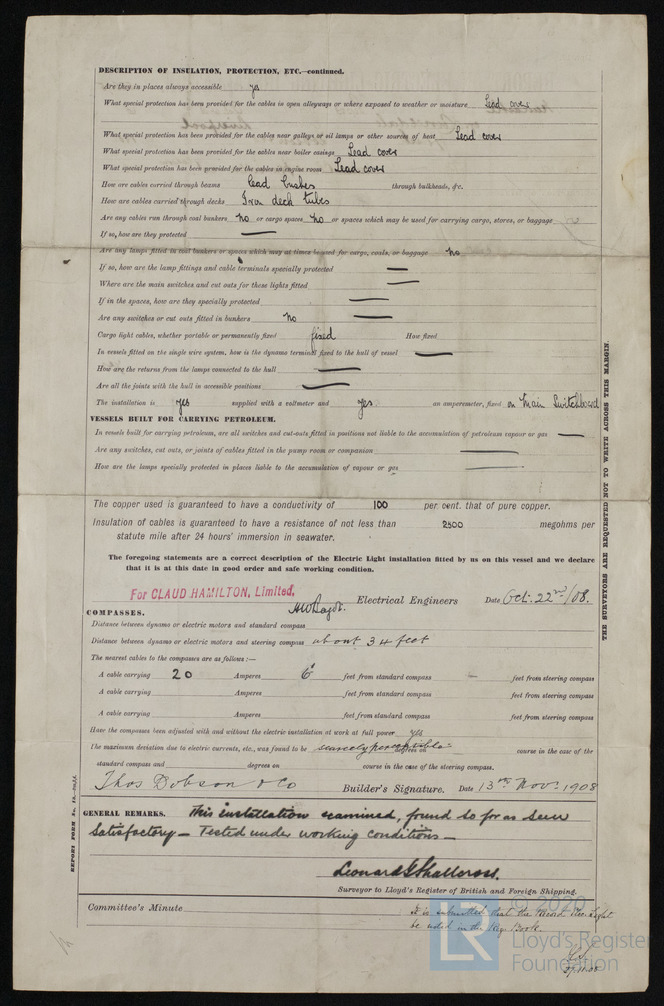 DESCRIPTION OF INSULATION, PROTECTION, ETC.—continued.
Are they in places always accessible yes
What special protection has been provided for the cables in open alleyways or where exposed to weather or moisture Lead cover
What special protection has been provided for the cables near galleys or oil lamps or other sources of heat Lead cover
What special protection has been provided for the cables near boiler casings Lead cover
What special protection has been provided for the cables in engine room Lead cover
How are cables carried through beams Lead bushes through bulkheads, &c.
How are cables carried through decks Iron deck tubes
Are any cables run through coal bunkers no or cargo spaces no or spaces which may be used for carrying cargo, stores, or baggage no
If so, how are they protected —
Are any lamps fitted in coal bunkers or spaces which may at times be used for cargo, coals, or baggage no
If so, how are the lamp fittings and cable terminals specially protected —
Where are the main switches and cut outs for these lights fitted —
If in the spaces, how are they specially protected —
Are any switches or cut outs fitted in bunkers no —
Cargo light cables, whether portable or permanently fixed fixed How fixed
In vessels fitted on the single wire system, how is the dynamo terminal fixed to the hull of vessel —
How are the returns from the lamps connected to the hull —
Are all the joints with the hull in accessible positions —
The installation is yes supplied with a voltmeter and yes an amperemeter, fixed on Main Switchboard
VESSELS BUILT FOR CARRYING PETROLEUM.
In vessels built for carrying petroleum, are all switches and cut-outs fitted in positions not liable to the accumulation of petroleum vapour or gas —
Are any switches, cut outs, or joints of cables fitted in the pump room or companion —
How are the lamps specially protected in places liable to the accumulation of vapour or gas —
The copper used is guaranteed to have a conductivity of 100 per cent. that of pure copper.
Insulation of cables is guaranteed to have a resistance of not less than 2500 megohms per
statute mile after 24 hours' immersion in seawater.
The foregoing statements are a correct description of the Electric Light installation fitted by us on this vessel and we declare
that it is at this date in good order and safe working condition.
For CLAUD HAMILTON, Limited.
Electrical Engineers Date Oct. 22nd/08.
COMPASSES.
Distance between dynamo or electric motors and standard compass
Distance between dynamo or electric motors and steering compass about 34 feet
The nearest cables to the compasses are as follows:—
A cable carrying 20 Amperes 6 feet from standard compass — feet from steering compass
A cable carrying Amperes feet from standard compass feet from steering compass
A cable carrying Amperes feet from standard compass feet from steering compass
Have the compasses been adjusted with and without the electric installation at work at full power yes
The maximum deviation due to electric currents, etc., was found to be scarcely perceptible degrees on course in the case of the
standard compass and degrees on course in the case of the steering compass.
Thos Dobson & Co Builder's Signature. Date 13th Nov. 1908
GENERAL REMARKS. This installation examined, found so far as seen
Satisfactory — Tested under working conditions —
Leonard G Shallcross.
Surveyor to Lloyd's Register of British and Foreign Shipping.
Committee's Minute
It is submitted that the Record Elec. Light
be noted in the Reg. Book.
27.11.08
THE SURVEYORS ARE REQUESTED NOT TO WRITE ACROSS THIS MARGIN.
© 2020
LR
Lloyd's Register
Foundation